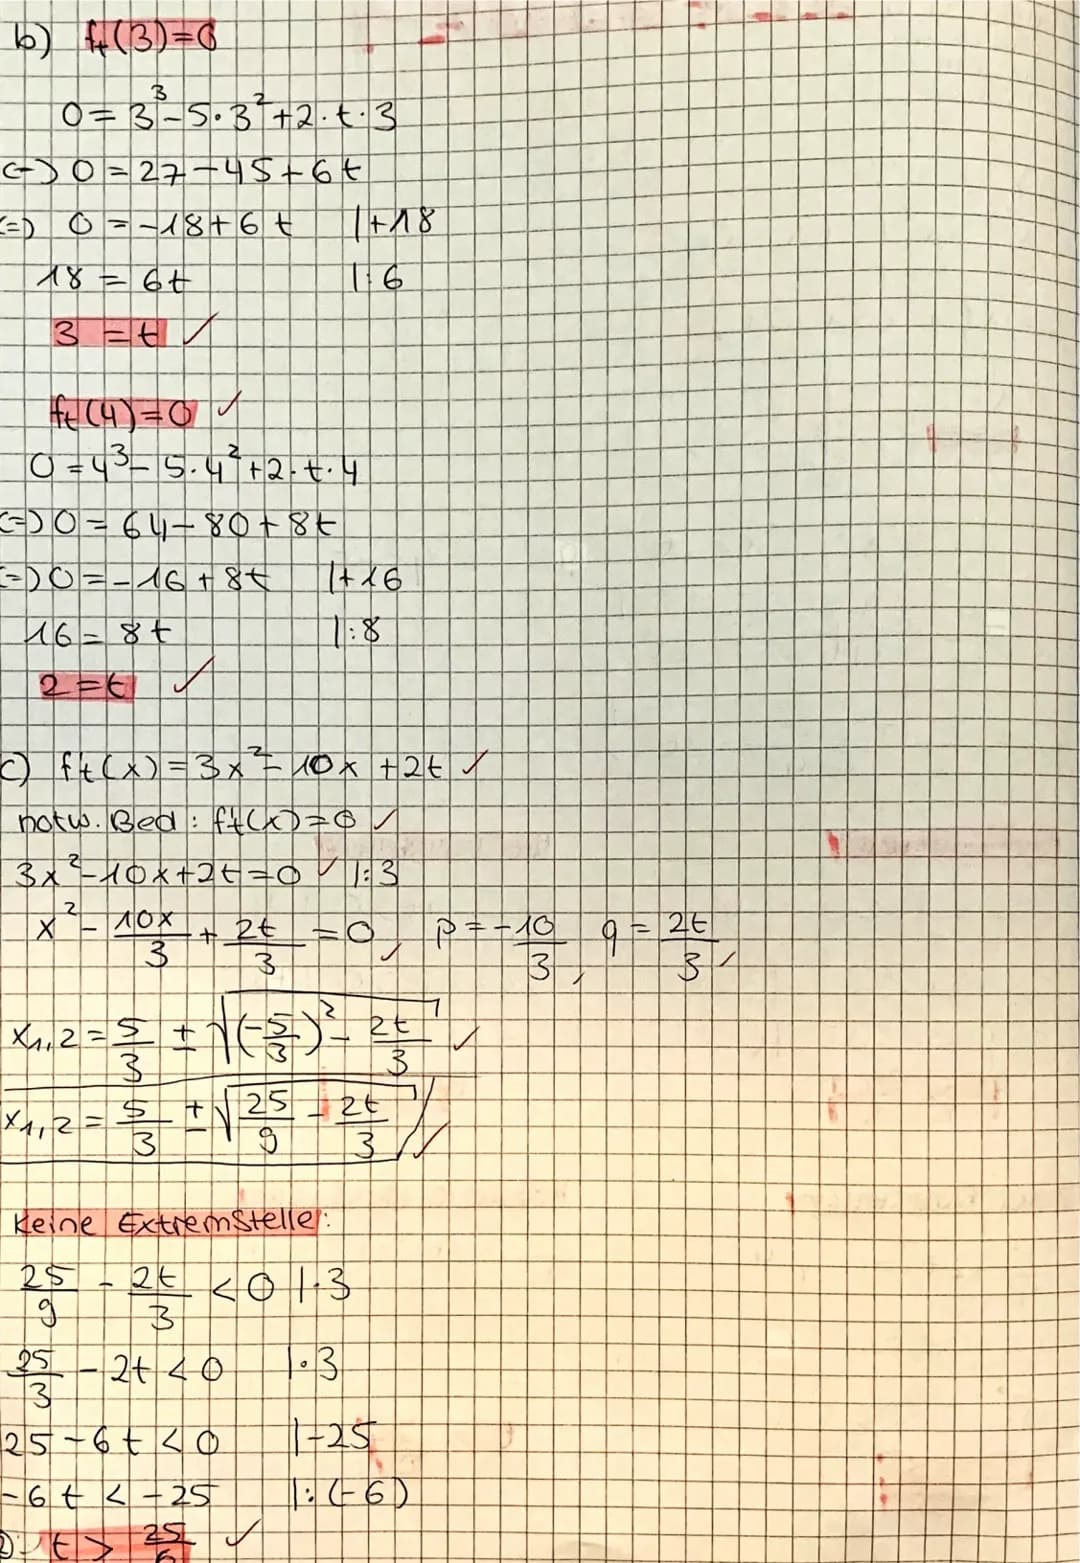 b) ft(3)=0
0 = 3³ - 5·3² + 2·t·3
(=) 0 = 27 - 45 + 6t
(=) 0 = -18 + 6t |+18
18 = 6t |:6
3 = t ✓
ft(4)=0 ✓
0 = 4³ - 5·4² + 2·t·4
(=) 0 = 64 - 80 + 8t
(=) 0 = -16 + 8t |+16
16 = 8t |:8
2 = t ✓
c) ft(x) = 3x² - 10x + 2t ✓
notw. Bed: ft(x)=0 ✓
3x² - 10x + 2t = 0 ✓ |:3
x² - 10x/3 + 2t/3 = 0, ✓ p = -10/3, q = 2t/3 ✓
x1,2 = 5/3 ± √((-5/3)² - 2t/3) ✓
x1,2 = 5/3 ± √(25/9 - 2t/3) // ✓
Keine Extremstelle:
25/9 - 2t/3 < 0 |·3
25/3 - 2t < 0 |·3
25 - 6t < 0 |-25
-6t < -25 |:(-6)
t > 25/6 ✓